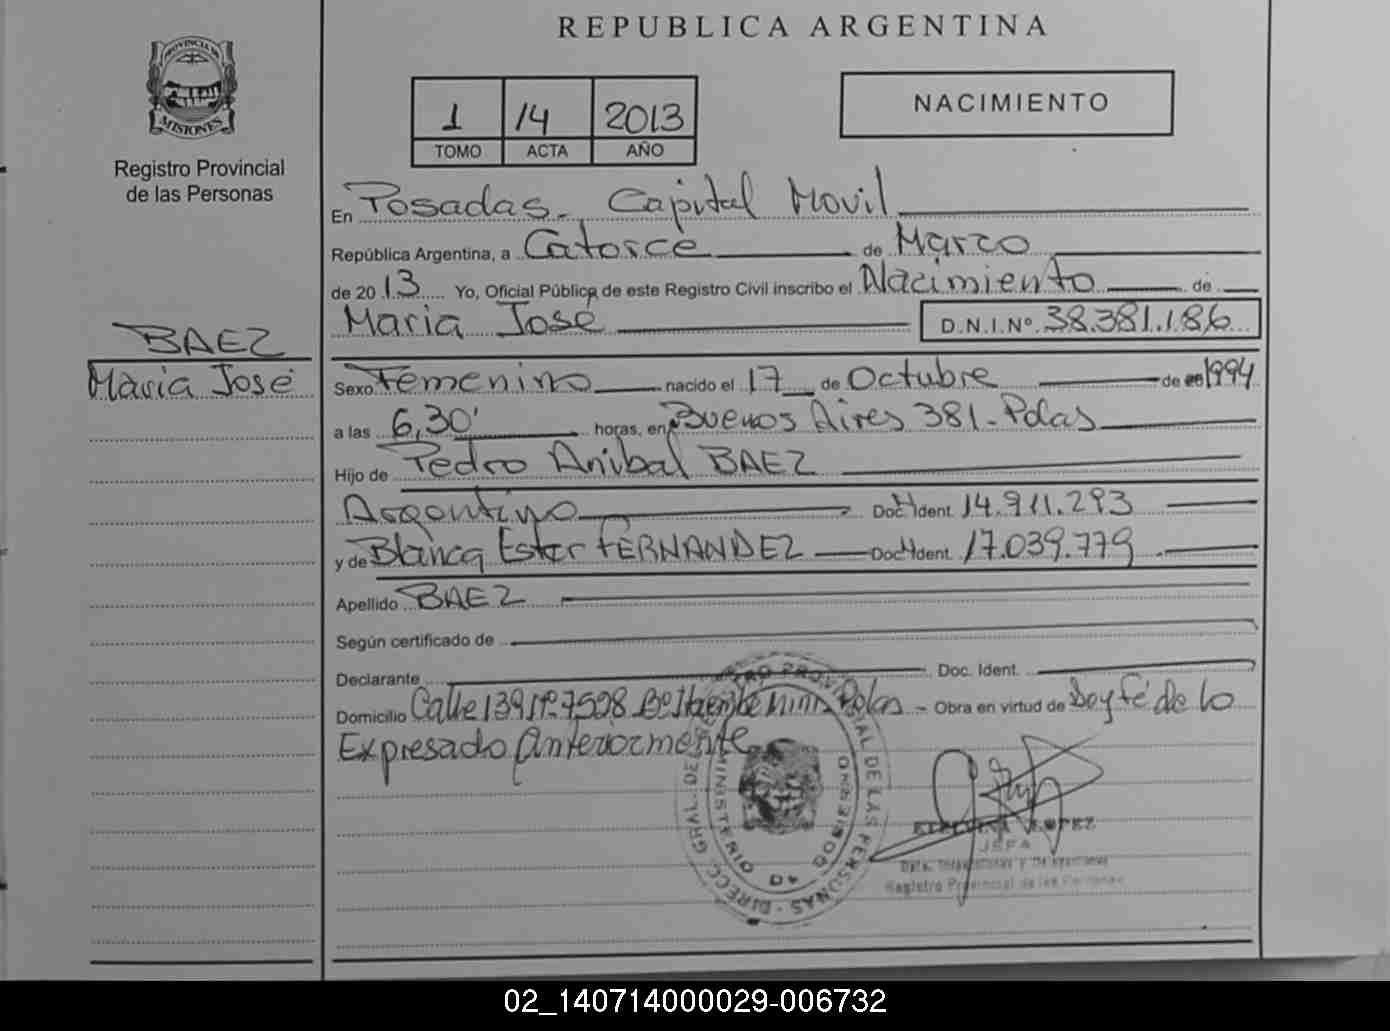 REPUBLICA ARGENTINA
PROVINCIA DE
MISIONES
Registro Provincial
de las Personas
1 14 2013
TOMO ACTA AÑO
NACIMIENTO
En Posadas. Capital Movil
República Argentina, a Catorce de Marzo
de 2013 Yo, Oficial Público de este Registro Civil inscribo el Nacimiento de
Maria José D.N.I.Nº 38.381.186
BAEZ
Maria José
Sexo Femenino nacido el 17 de Octubre de 1994
a las 6,30' horas, en Buenos Aires 381 - Pdas
Hijo de Pedro Anibal BAEZ
Argentino Doc. Ident. 14.911.293
y de Blanca Ester FERNANDEZ Doc. Ident. 17.039.779
Apellido BAEZ
Según certificado de
Declarante Doc. Ident.
Domicilio Calle 139 Nº 7508 Pdas - Obra en virtud de Doy fé de lo
Expresado Anteriormente
DIRECC. GRAL. DE REGISTRO PROVINCIAL DE LAS PERSONAS
MINISTERIO DE GOBIERNO
LOPEZ
JEFA
Registro Provincial de las Personas
02_140714000029-006732